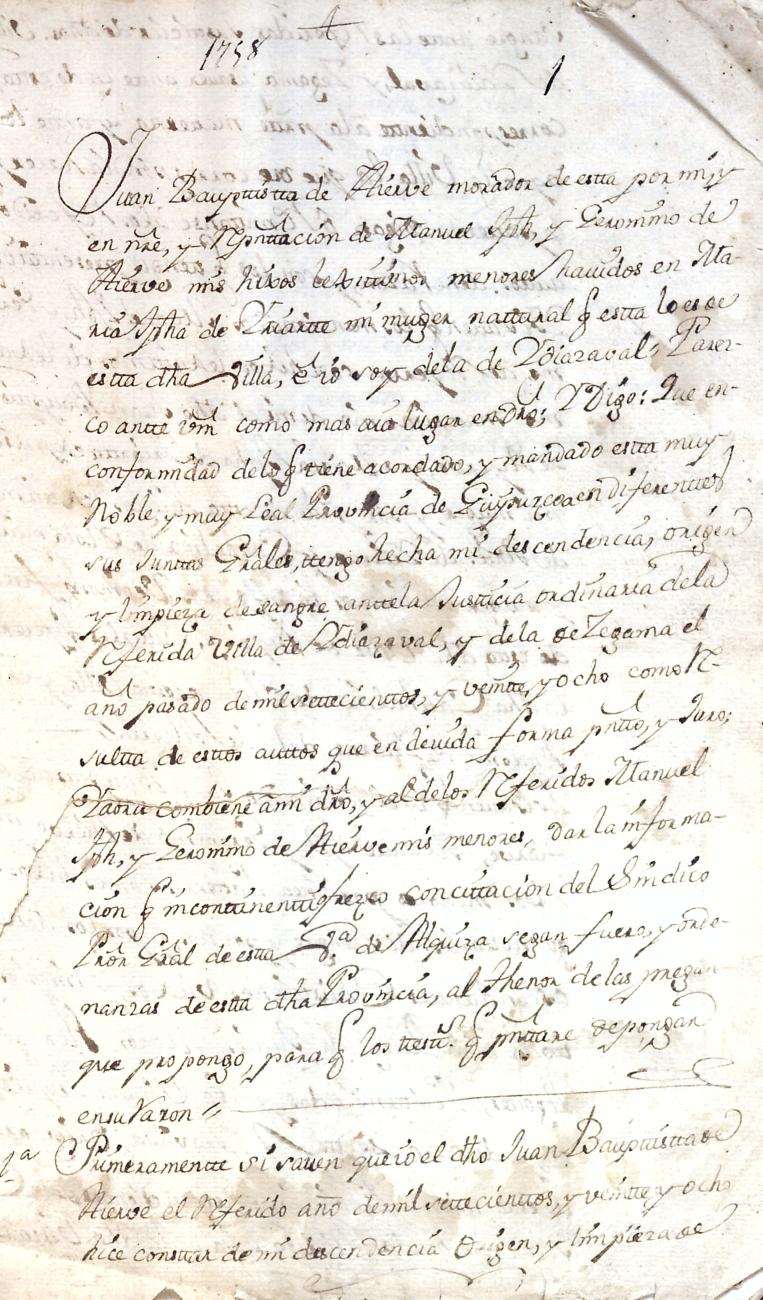 1758
1
Juan Bauptistta de Aierve morador de estta por mi, y
en nre, y Rpnttacion de Manuel Jph, y Geronimo de
Aierve mis hixos lexittimos menores havidos en Ma-
ria Jpha de Yriartte mi muger nattural q estta lo es de
estta dha Villa, è io soy de la de Ydiazaval, Parez-
co antte vm como mas aia lugar en dro; Y Digo: Que en
conformidad de lo q tiene acordado, y mandado estta muy
Noble, y muy Leal Provincia de Guypuzcoa en diferenttes
sus Junttas Grales, ttengo hecha mi descendencia, origen
y limpieza de sangre antte la Justicia ordinaria de la
Rferida Villa de Ydiazaval, y de la de Zegama el
año pasado de mil settecienttos, y veintte, y ocho como R-
sultta de esttos auttos que en devida forma pntto, y Juro;
Y aora combiene à mi dro, y al de los Rferidos Manuel
Jph, y Geronimo de Aierve mis menores, dar la informa-
cion q incontinentti ofrezco con cittacion del Sindico
Pror Gral de estta de Alquiza segun fuero, y orde-
nanzas de estta dha Provincia, al thenor de las pregun-
que propongo, para q los ttestt.s q pnttare depongan
en su Razon
1a Primeramentte si saven que io el dho Juan Bauptistta de
Aierve el Rferido año de mil settecienttos, y veintte y ocho
hice constar de mi descendencia origen, y limpieza de